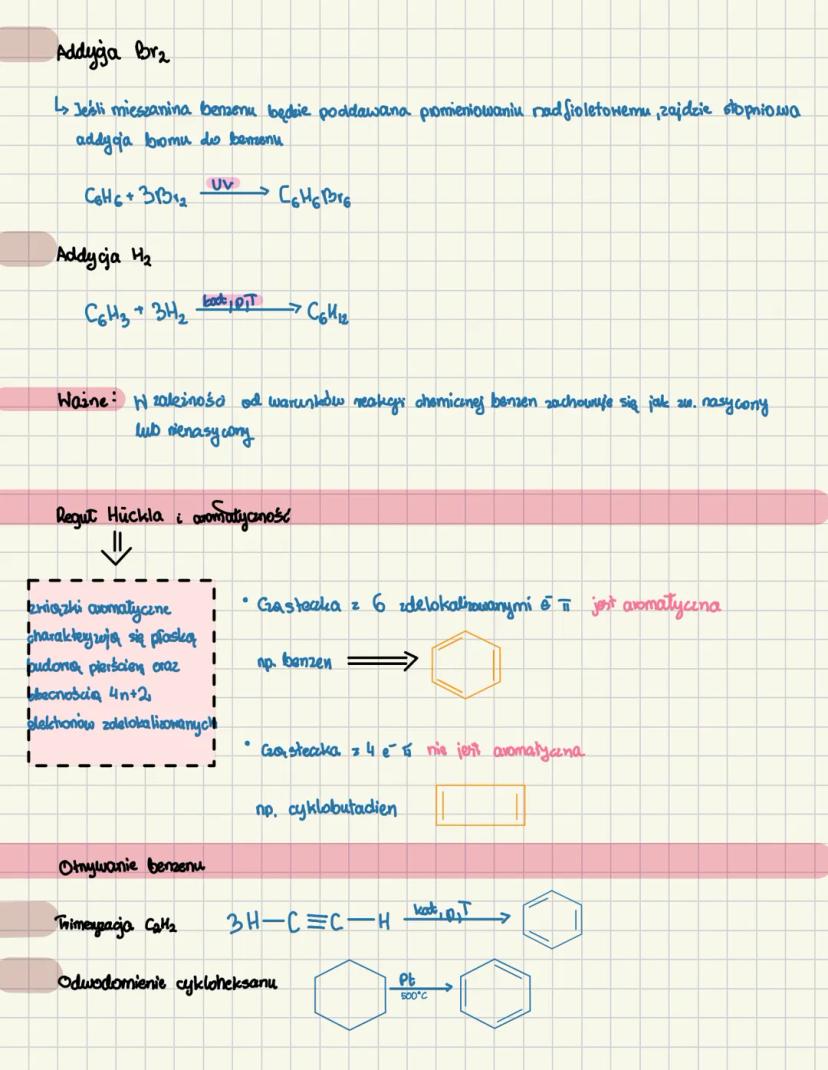 Addycja Br₂
↳ Jeśli mieszanina benzenu będzie poddawana promieniowaniu nadfioletowemu, zajdzie stopniowa
addycja bromu do benzenu
C₆H₆ + 3Br₂ UV → C₆H₆Br₆
Addycja H₂
C₆H₃ + 3H₂ kat, p, T → C₆H₁₂
Ważne: W zależności od warunków reakcji chemicznej benzen zachowuje się jak zw. nasycony
lub nienasycony
Reguł Hückla i aromatyczność
związki aromatyczne
charakteryzują się płaską
budową pierścien oraz
obecnością 4n+2,
elektronów zdelokalizowanych
• Cząsteczka z 6 zdelokalizowanymi e⁻ π jest aromatyczna
np. benzen ⇒
• Cząsteczka z 4 e⁻ π nie jest aromatyczna
np. cyklobutadien
Otrzywanie benzenu
Trimeryzacja C₂H₂ 3H—C≡C—H kat, p, T →
Odwodornienie cykloheksanu Pt →
500°C